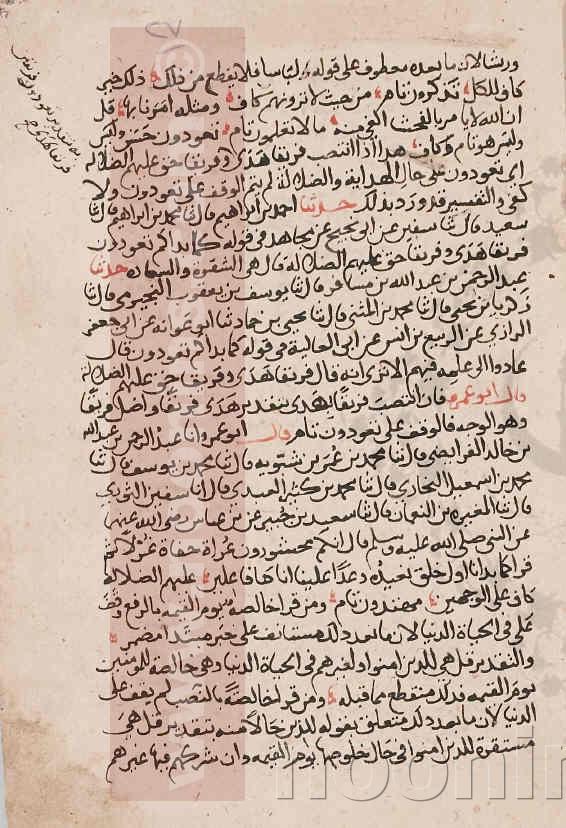 وريشا لان ما بعده معطوف على قوله لباسا فلا يقطع من ذلك ذلك خير
كاف للكل تذكرون تام من حيث لا ترونهم كاف ومثله امرنا بها قل
ان الله لا يامر بالفحشا اكفى منه ما لا تعلمون تام تعودون حسن وليس
وليس هو تام ولا كاف هذا اذا انتصب فريقا هدى وفريقا حق عليهم الضلالة
اي تعودون على حال الهداية والضلالة لم يتم الوقف على تعودون ولا
كفى والتفسير قد ورد بذلك حدثنا احمد بن ابراهيم قال ثنا محمد بن ابراهيم قال ثنا
سعيد قال ثنا سفين عن ابن ابي نجيح عن مجاهد في قوله كما بداكم تعودون
فريقا هدى وفريقا حق عليهم الضلالة قال هي الشقوة والسعادة حدثنا
عبد الرحمن بن عبد الله بن مسافر قال ثنا يوسف بن يعقوب النجيرمي قال ثنا
زكريا بن يحيى قال ثنا محمد بن المثنى قال ثنا يحيى بن حماد ثنا ابو عوانة عن ابي جعفر
الرازي عن الربيع بن انس عن ابي العالية في قوله كما بداكم تعودون قال
عادوا الى علمه فيهم الا ترى انه قال فريقا هدى وفريقا حق عليهم الضلالة
قال ابو عمرو فان انتصب فريقا بهدى بتقدير هدى فريقا واضل فريقا
وهو الوجه فالوقف على تعودون تام قال ابو عمرو وانا عبد الرحمن بن عبد الله
بن خالد الفرايضي قال ثنا محمد بن عمر بن شبويه قال ثنا محمد بن يوسف قال ثنا
محمد بن اسمعيل البخاري قال ثنا محمد بن كثير العبدي قال انا سفين الثوري
قال ثنا المغيرة بن النعمان قال ثنا سعيد بن جبير عن ابن عباس رضى الله عنهما
عن النبي صلى الله عليه وسلم قال انكم محشورون عراة حفاة غرلا ثم
قرا كما بدانا اول خلق نعيده وعدا علينا انا كنا فاعلين عليهم الضلالة
كاف على الوجهين مهتدون تام ومن قرا خالصة يوم القيمة بالرفع وقف
على في الحياة الدنيا لان ما بعد ذلك مستانف على خبر مبتدا مضمر
والتقدير قل هي للذين امنوا ولغيرهم في الحياة الدنيا وهي خالصة للمومنين
يوم القيمة فذلك منقطع مما قبله ومن قرا خالصة بالنصب لم يقف على
الدنيا لان ما بعد ذلك متعلق بقوله للذين حالا منه بتقدير قل هي
مستقرة للذين امنوا في حال خلوصها يوم القيمة وان شركهم فيها غيرهم
noorin